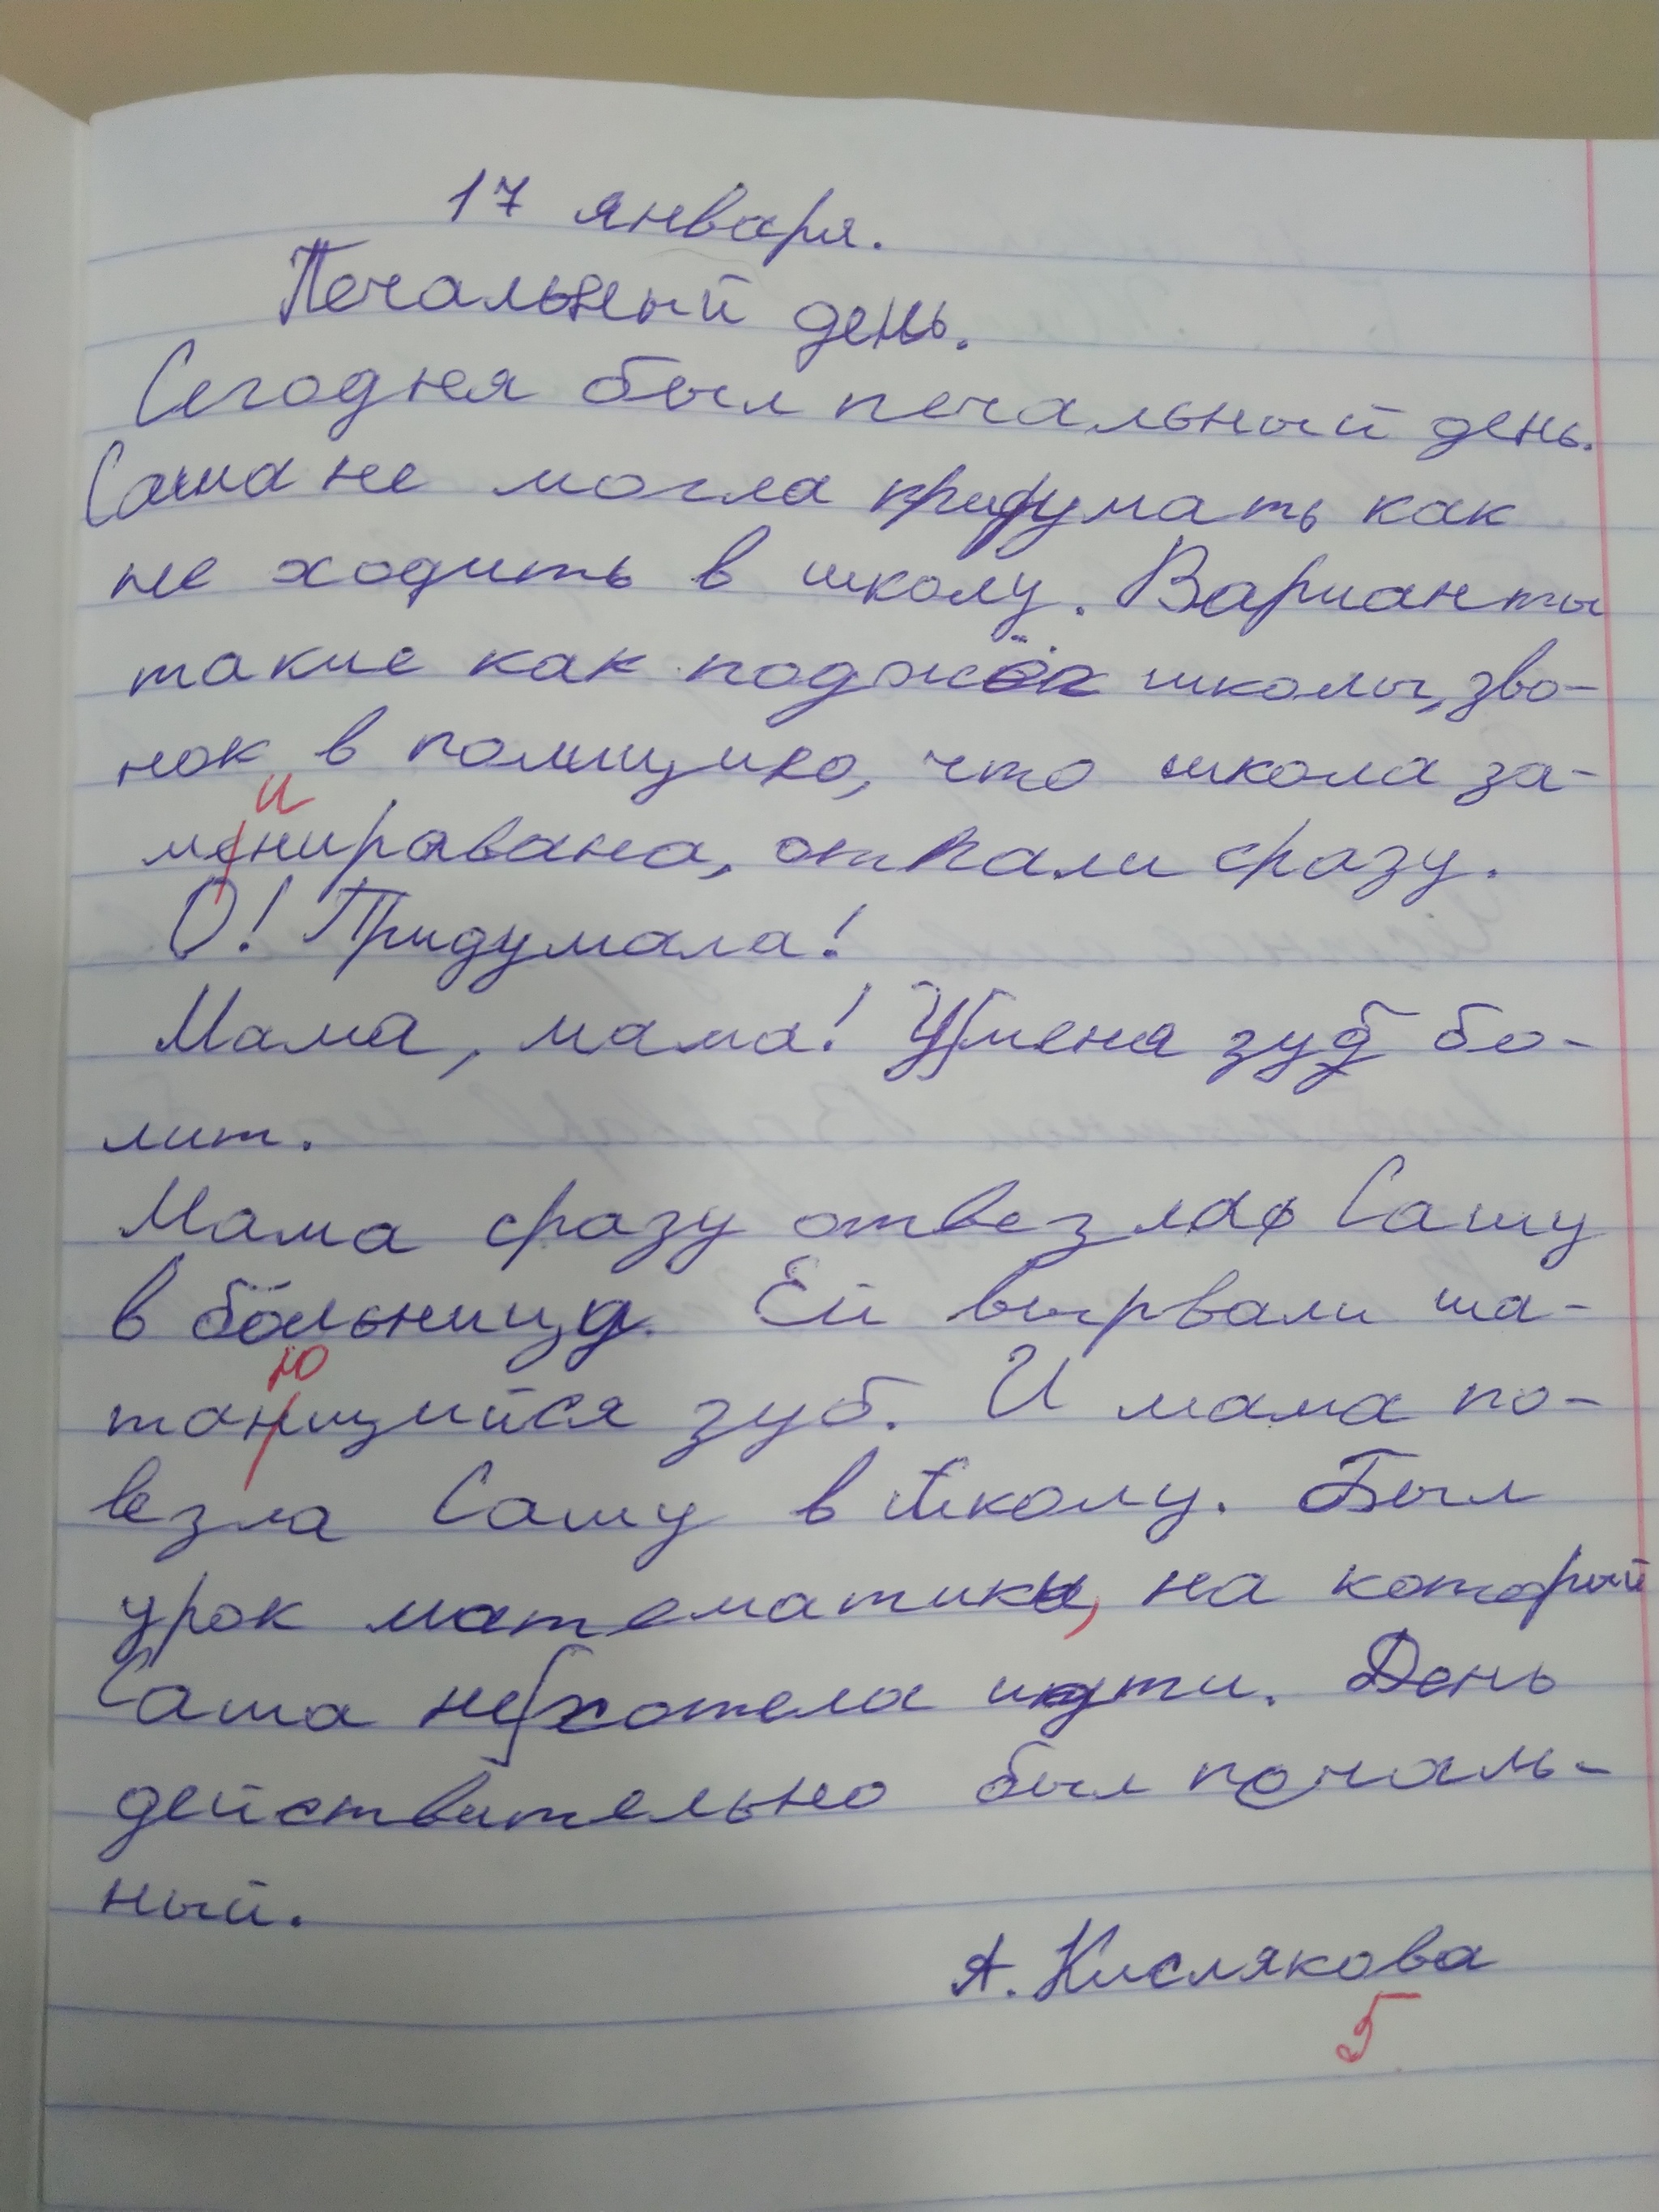 17 января.
Печальный день.
Сегодня был печальный день.
Саша не могла придумать как
не ходить в школу. Варианты
такие как поджёг школы, зво-
нок в полицию, что школа за-
и
менирована, отпали сразу.
О! Придумала!
Мама, мама! У меня зуб бо-
лит.
Мама сразу отвезла Сашу
в больницу. Ей вырвали ша-
ю
тающийся зуб. И мама по-
везла Сашу в школу. Был
урок математики, на который
Саша не хотела идти. День
действительно был печаль-
ный.
А. Кислякова
5